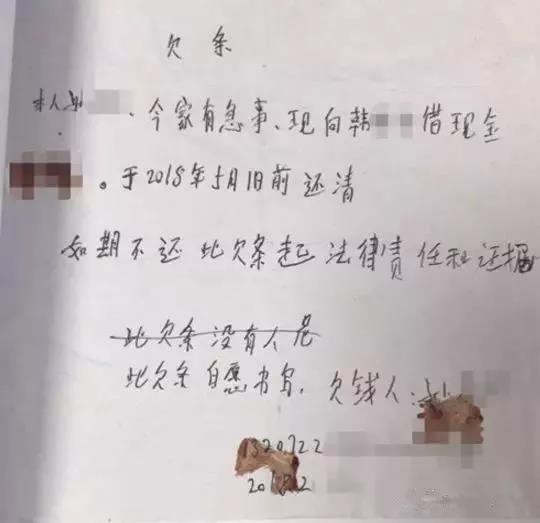 欠条
本人
、今家有急事、现向韩 借现金
。于2018年5月1日前还清
如期不还 此欠条起法律责任和证据
此欠条没有人
此欠条自愿书写、欠钱人:
1320722
2018.2